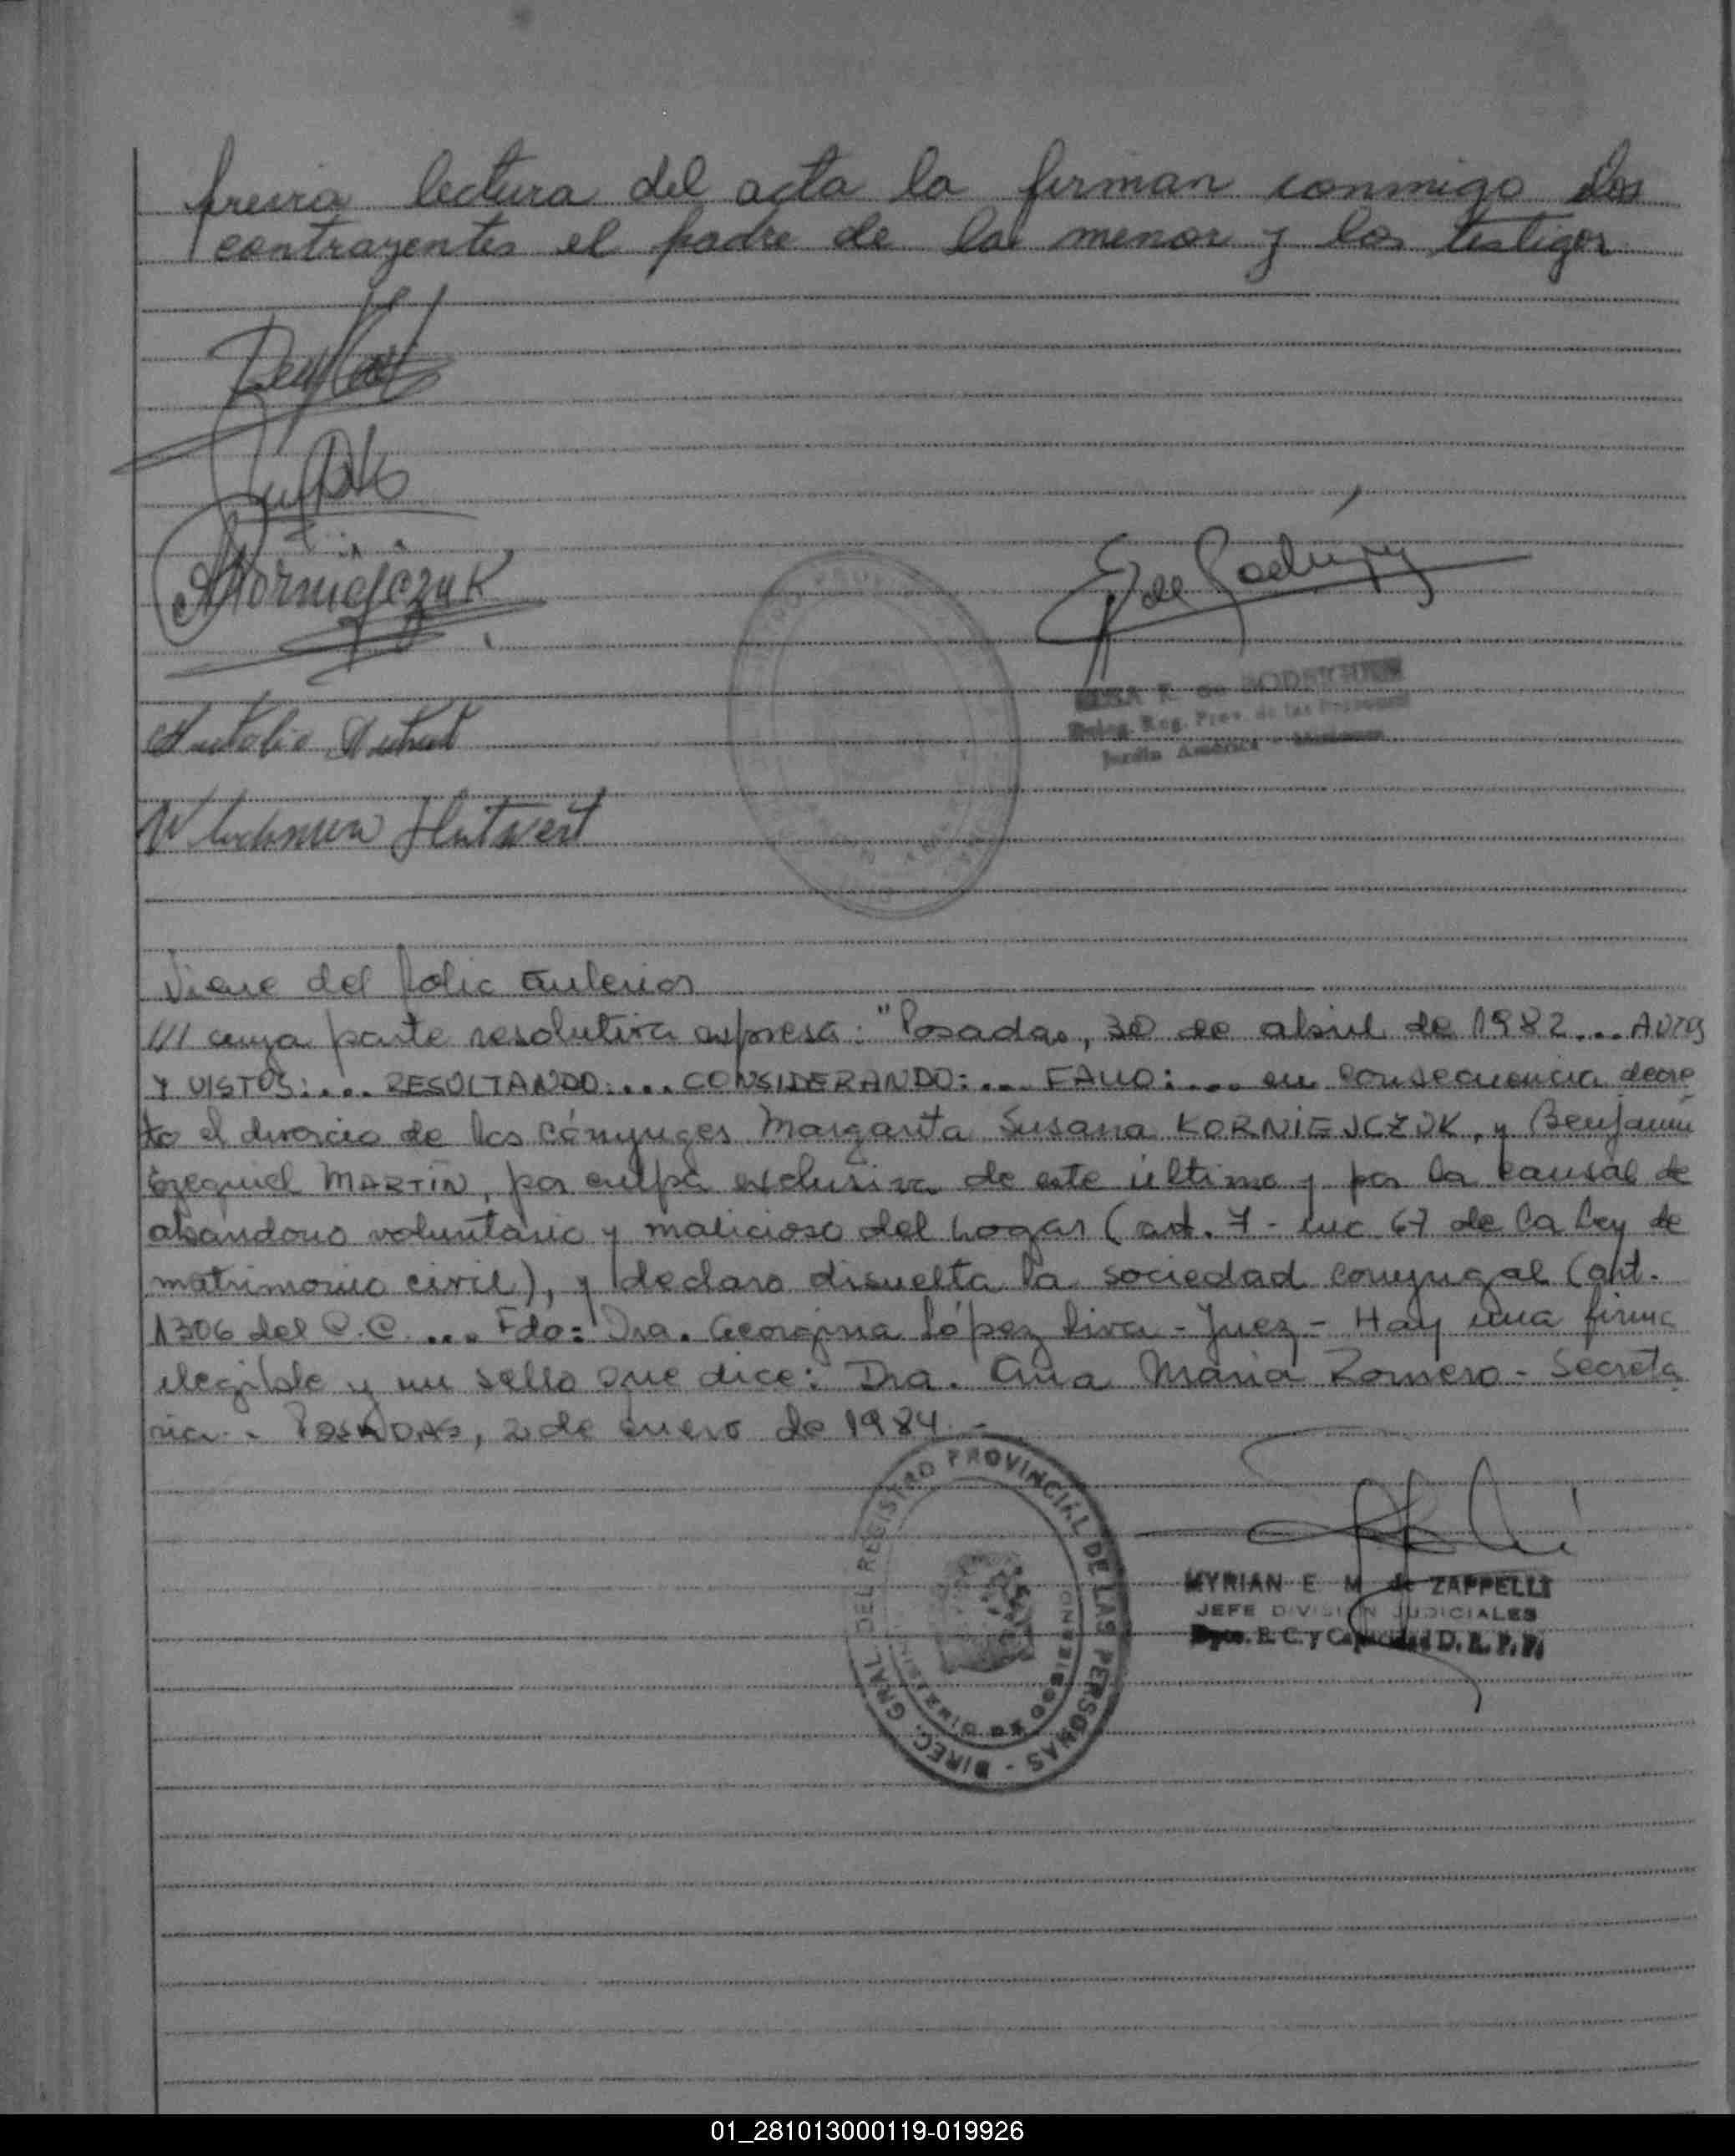 previa lectura del acta la firman conmigo los
contrayentes el padre de la menor y los testigos
Korniejczuk
E de
Jardín América - Misiones
Viene del folio anterior
/// cuya parte resolutiva expresa: "Posadas, 30 de abril de 1982... AUTOS
Y VISTOS:... RESULTANDO:... CONSIDERANDO:... FALLO:... en consecuencia decre
to el divorcio de los cónyuges Margarita Susana KORNIEJCZUK, y Benjamín
Ezequiel MARTIN, por culpa exclusiva de este último y por la causal de
abandono voluntario y malicioso del hogar (art. 7 - inc 67 de la Ley de
matrimonio civil), y declaro disuelta la sociedad conyugal (art.
1306 del C.C. ... Fdo: Dra. Georgina López Liva - Juez - Hay una firma
ilegible y un sello que dice: Dra. Ana María Romero - Secreta
ria - POSADAS, 2 de enero de 1984.-
DIREC. GRAL DEL REGISTRO PROVINCIAL DE LAS PERSONAS -
MINISTERIO DE GOBIERNO
MYRIAN E M de ZAPPELLI
JEFE DIVISION JUDICIALES
Dpto. E. C. y Capacidad D. R. P. P.
01_281013000119-019926